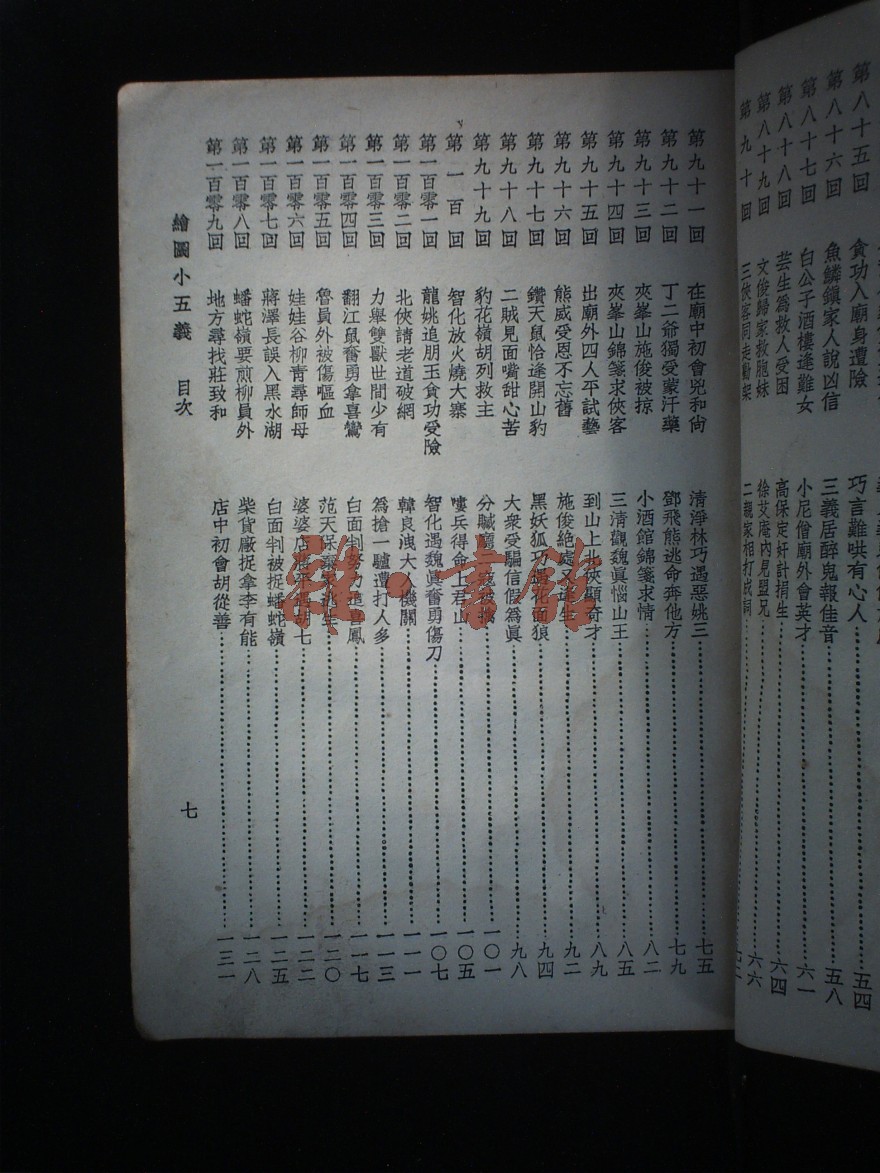 第八十五回 貪功入廟身遭險 巧言難哄有心人 五四
第八十六回 魚鱗鎮家人說凶信 三義居醉鬼報佳音 五八
第八十七回 白公子酒樓逢難女 小尼僧廟外會英才 六一
第八十八回 芸生為救人受困 高保定奸計捐生 六四
第八十九回 文俊歸家救胞妹 徐艾庵內見盟兄 六六
第九十回 三俠客同走勸架 二親家相打成詞
第九十一回 在廟中初會兇和尚 清淨林巧遇惡姚三 七五
第九十二回 丁二爺獨受蒙汗藥 鄧飛熊逃命奔他方 七九
第九十三回 夾峯山施俊被掠 小酒館錦箋求情 八二
第九十四回 夾峯山錦箋求俠客 三清觀魏眞惱山王 八五
第九十五回 出廟外四人平試藝 到山上北俠顯奇才 八九
第九十六回 熊威受恩不忘舊 施俊絕處又逢生 九二
第九十七回 鑽天鼠恰逢開山豹 黑妖狐巧遇花面狼 九四
第九十八回 二賊見面嘴甜心苦 大衆受騙信假爲眞 九八
第九十九回 豹花嶺胡列救主 分贓 一〇一
第一百回 智化放火燒大寨 嘍兵得命上君山 一〇五
第一百零一回 龍姚追朋玉貪功受險 智化遇魏眞奮勇傷刀 一〇七
第一百零二回 北俠請老道破網 韓良洩大人機關 一一一
第一百零三回 力舉雙獸世間少有 爲搶一驢遭打人多 一一三
第一百零四回 翻江鼠奮勇拿喜鸞 白面判努力追喜鳳 一一七
第一百零五回 魯員外被傷嘔血 范天保棄家逃生 一二〇
第一百零六回 娃娃谷柳青尋師母 婆婆店蔣平遇胡七 一二二
第一百零七回 蔣澤長誤入黑水湖 白面判被捉蟠蛇嶺 一二五
第一百零八回 蟠蛇嶺要煎柳員外 柴貨廠捉拿李有能 一二八
第一百零九回 地方尋找莊致和 店中初會胡從善 一三一
繪圖小五義 目次
七
雜·書館